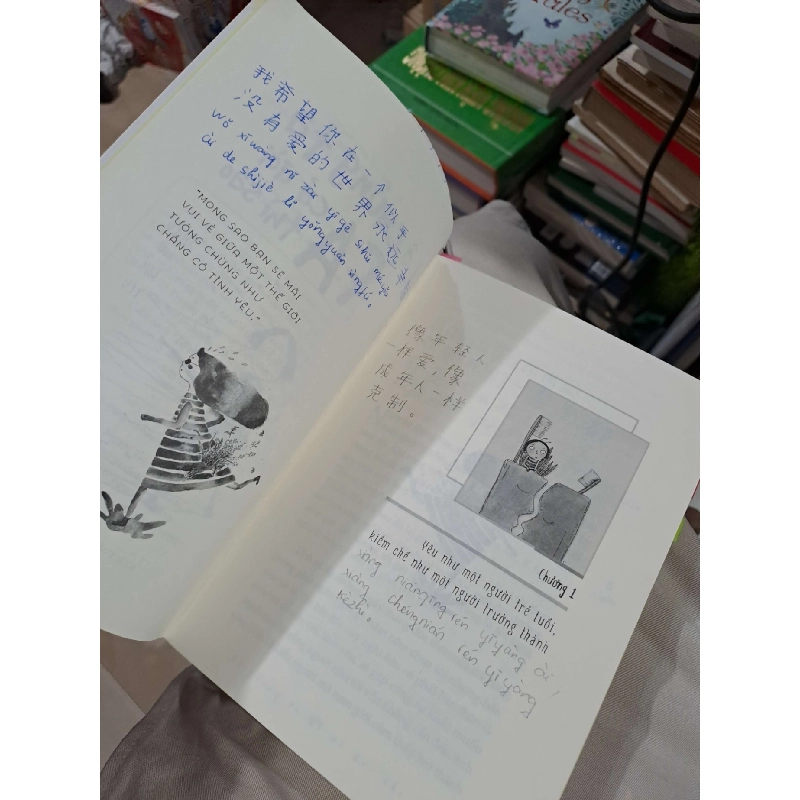 我希望你在一个似乎
没有爱的世界永远幸
wǒ xīwàng nǐ zài yīgè shìhū méiyǒu
ài de shìjiè lǐ yǒngyuǎn xìngfú.
"MONG SAO BẠN SẼ MÃI
VUI VẺ GIỮA MỘT THẾ GIỚI
TƯỞNG CHỪNG NHƯ
CHẲNG CÓ TÌNH YÊU."
像年轻人
一样爱，像
成年人一样
克制。
Chương 1
Yêu như một người trẻ tuổi,
kiềm chế như một người trưởng thành
xiàng niánqīng rén yīyàng ài,
xiàng chéngnián rén yīyàng
kèzhì.
Tales